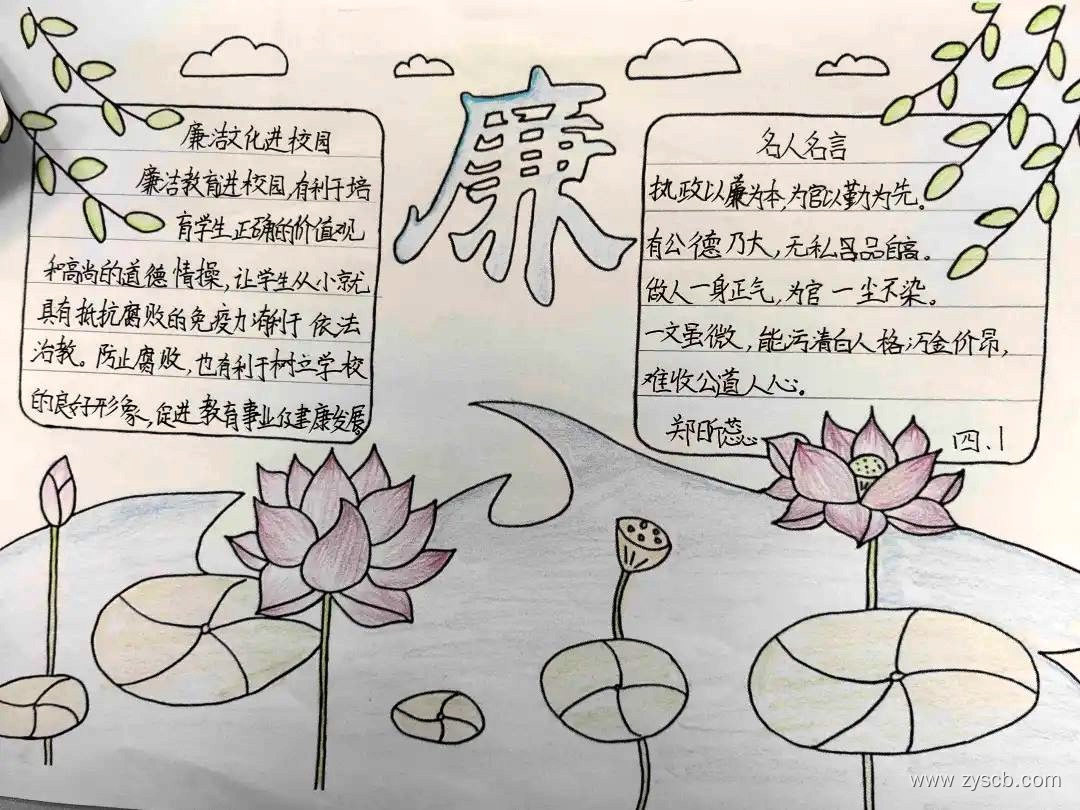 廉
廉洁文化进校园
廉洁教育进校园,有利于培
育学生正确的价值观
和高尚的道德情操,让学生从小就
具有抵抗腐败的免疫力,有利于依法
治教。防止腐败,也有利于树立学校
的良好形象,促进教育事业健康发展
名人名言
执政以廉为本,为官以勤为先。
有公德乃大,无私品自高。
做人一身正气,为官一尘不染。
一文虽微,能污清白人格,万金价昂,
难收公道人心。
郑昕蕊 四.1
www.zyscb.com